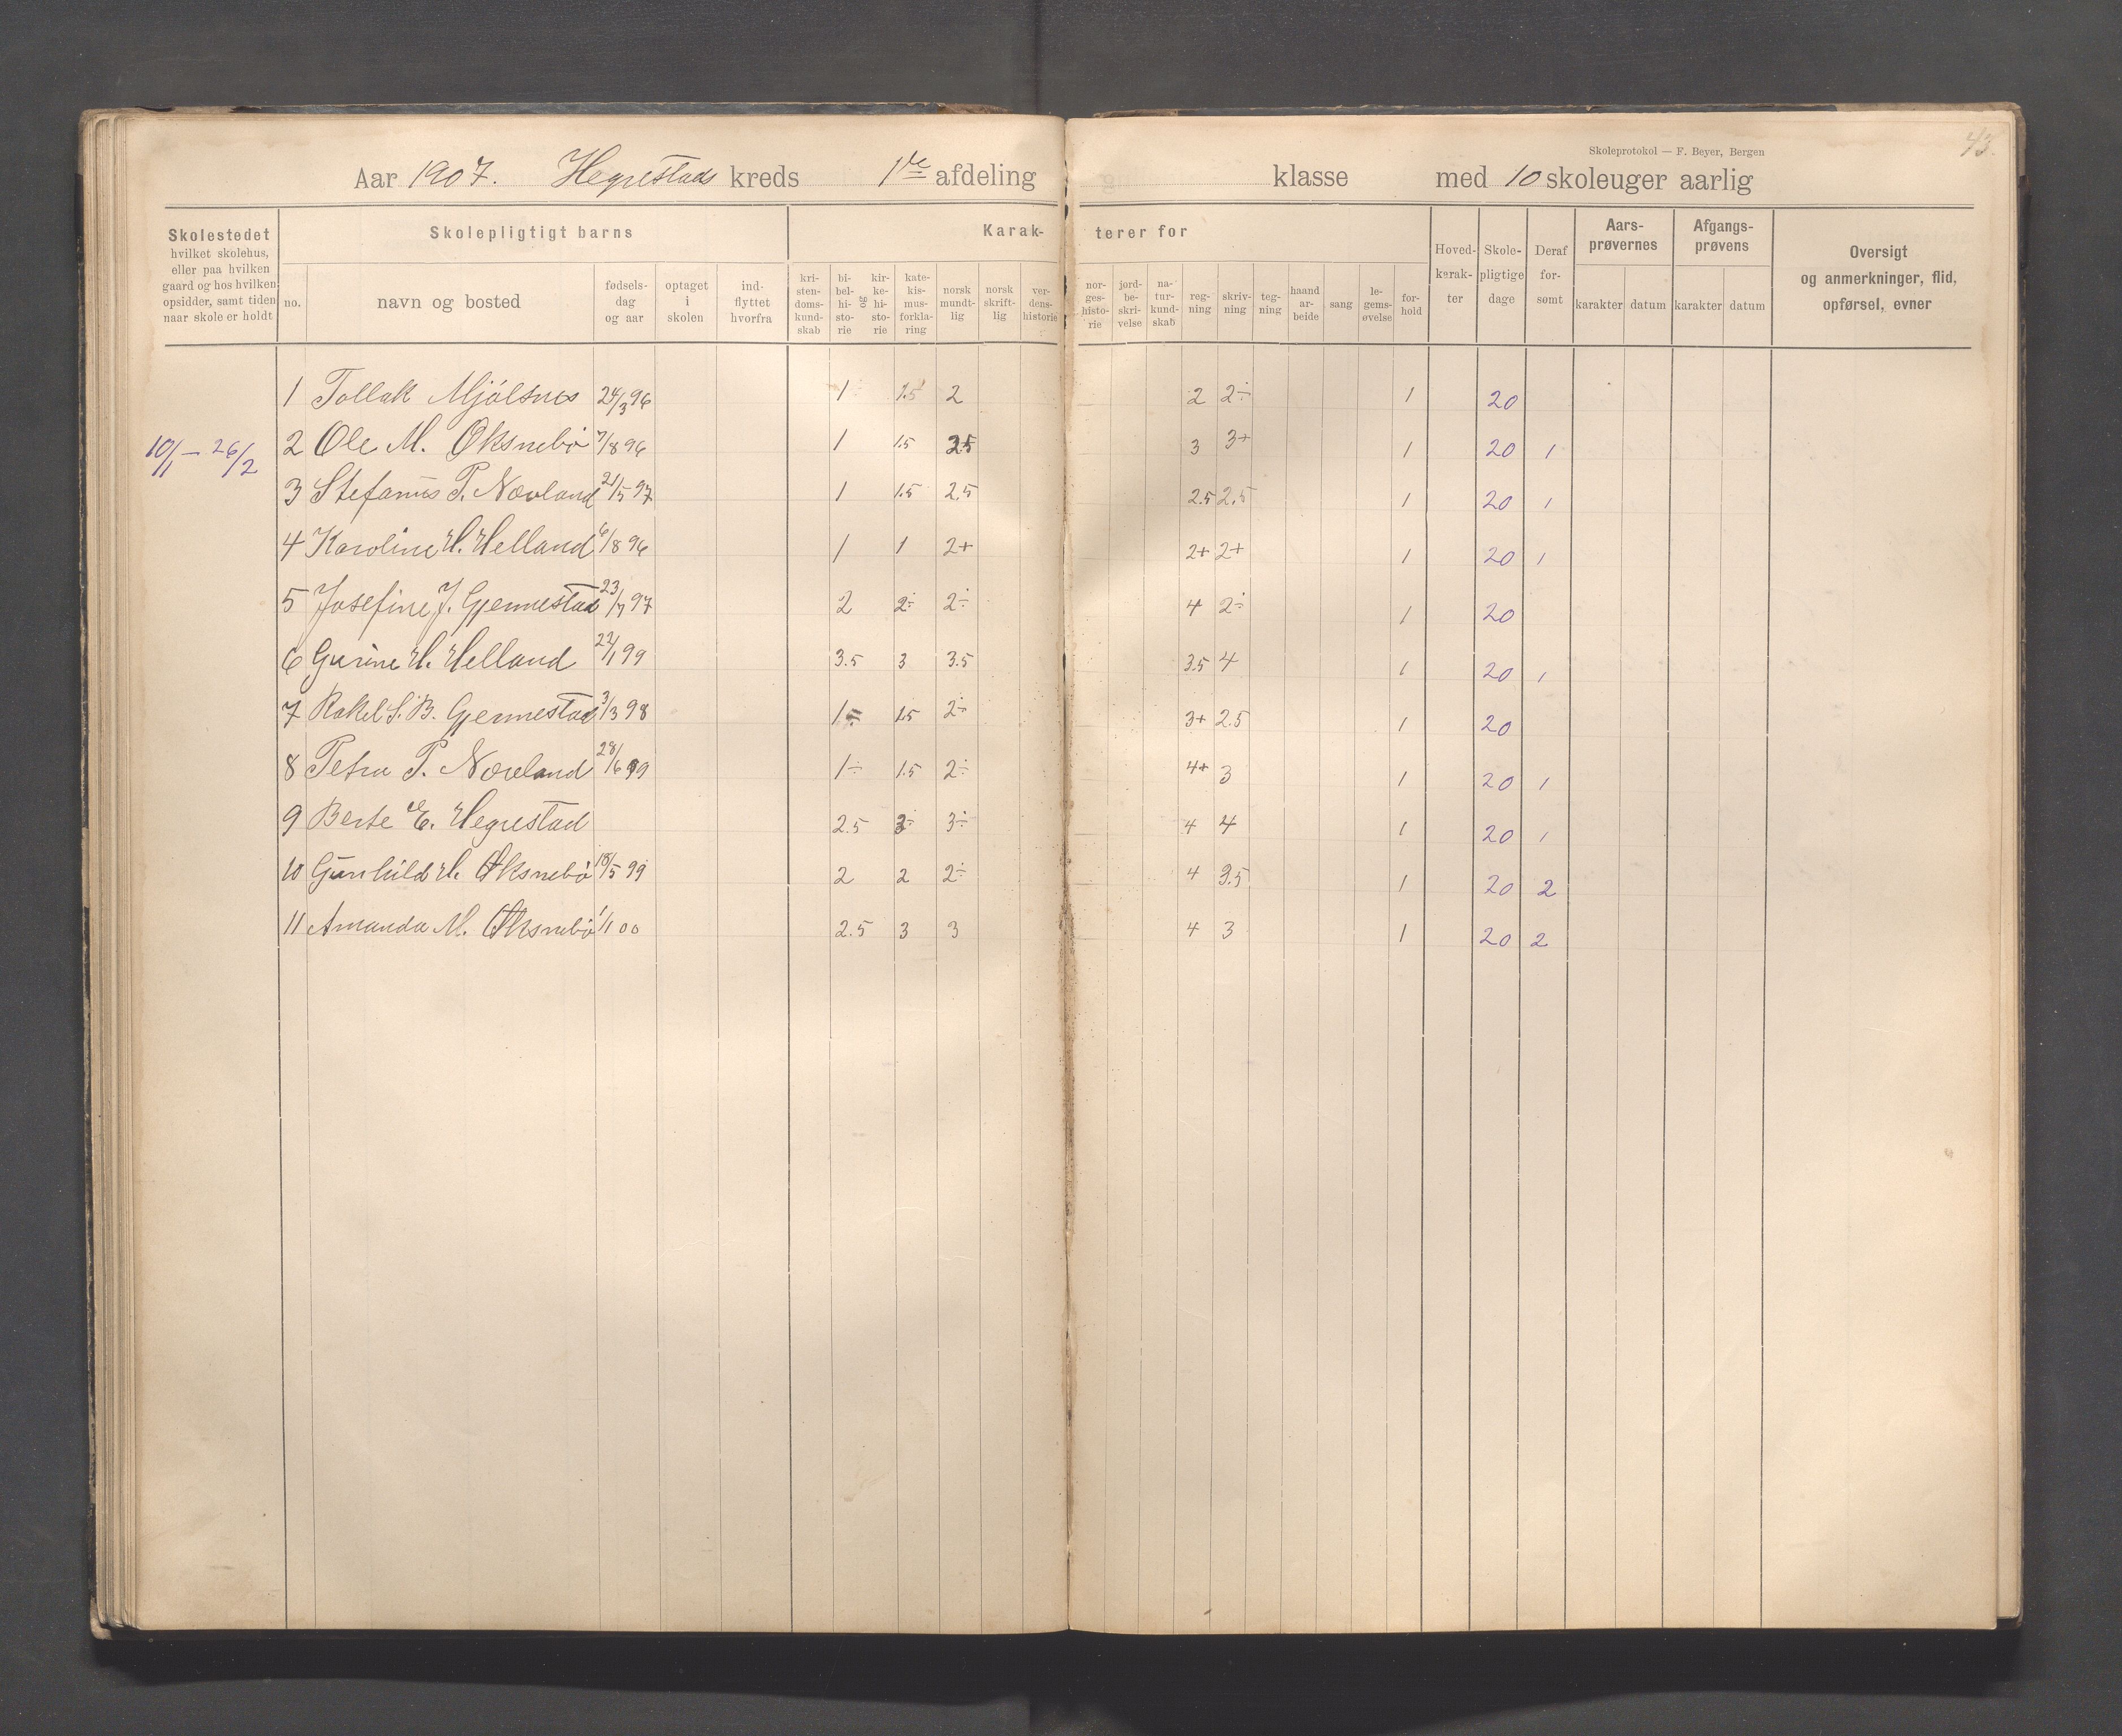 43.
Skoleprotokol — F. Beyer, Bergen
Aar 1907. Hegrestads kreds 1ste afdeling klasse med 10 skoleuger aarlig
Skolestedet hvilket skolehus, eller paa hvilken gaard og hos hvilken opsidder, samt tiden naar skole er holdt
Skolepligtigt barns
no. navn og bosted fødsels-dag og aar optaget i skolen ind-flyttet hvorfra
Karak-terer for
kri-sten-doms-kund-skab bi-bel-hi-sto-rie og kir-ke-hi-sto-rie kate-kis-mus-forkla-ring norsk mundt-lig norsk skrift-lig ver-dens-historie nor-ges-histo-rie jord-be-skri-velse na-tur-kund-skab reg-ning skriv-ning teg-ning haand ar-beide sang le-gems-øvelse for-hold
Hoved-karak-ter Skole-pligtige dage Deraf for-sømt
Aars-prøvernes karakter datum
Afgangs-prøvens karakter datum
Oversigt og anmerkninger, flid, opførsel, evner
1 Tollak Mjölsnes 24/3 96 1 1.5 2 2 2÷ 1 20
10/1 — 26/2 2 Ole M. Øksnebø 7/8 96 1 1.5 2.5 3 3+ 1 20 1
3 Stefanus P. Nævland 21/5 97 1 1.5 2.5 2.5 2.5 1 20 1
4 Karoline H. Helland 6/8 96 1 1 2+ 2+ 2+ 1 20 1
5 Josefine J. Gjennestad 23/7 97 2 2÷ 2÷ 4 2÷ 1 20
6 Gurine H. Helland 22/1 99 3.5 3 3.5 3.5 4 1 20 1
7 Rakel S. B. Gjennestad 3/3 98 1÷ 1.5 2÷ 3+ 2.5 1 20
8 Petra P. Nævland 28/6 99 1÷ 1.5 2÷ 4+ 3 1 20 1
9 Berte E. Hegrestad 2.5 3÷ 3÷ 4 4 1 20 1
10 Gunhild H. Øksnebø 18/5 99 2 2 2÷ 4 3.5 1 20 2
11 Amanda M. Øksnebø 1/1 00 2.5 3 3 4 3 1 20 2